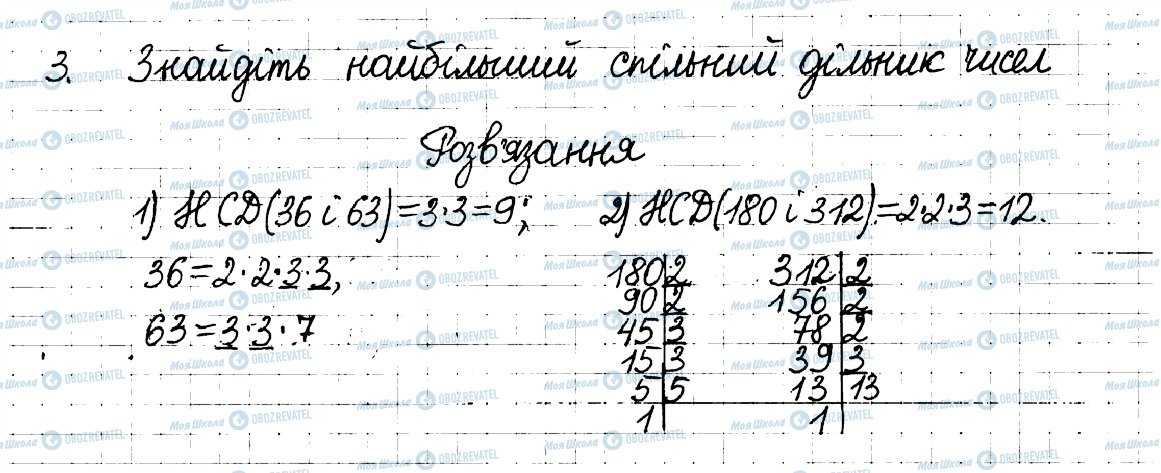 3. Знайдіть найбільший спільний дільник чисел
Розв'язання
1) НСD(36 і 63)=3·3=9;
36=2·2·3·3,
63=3·3·7
2) НСD(180 і 312)=2·2·3=12.
180|2 312|2
90|2 156|2
45|3 78|2
15|3 39|3
5|5 13|13
1| 1|
Моя Школа OBOZREVATEL